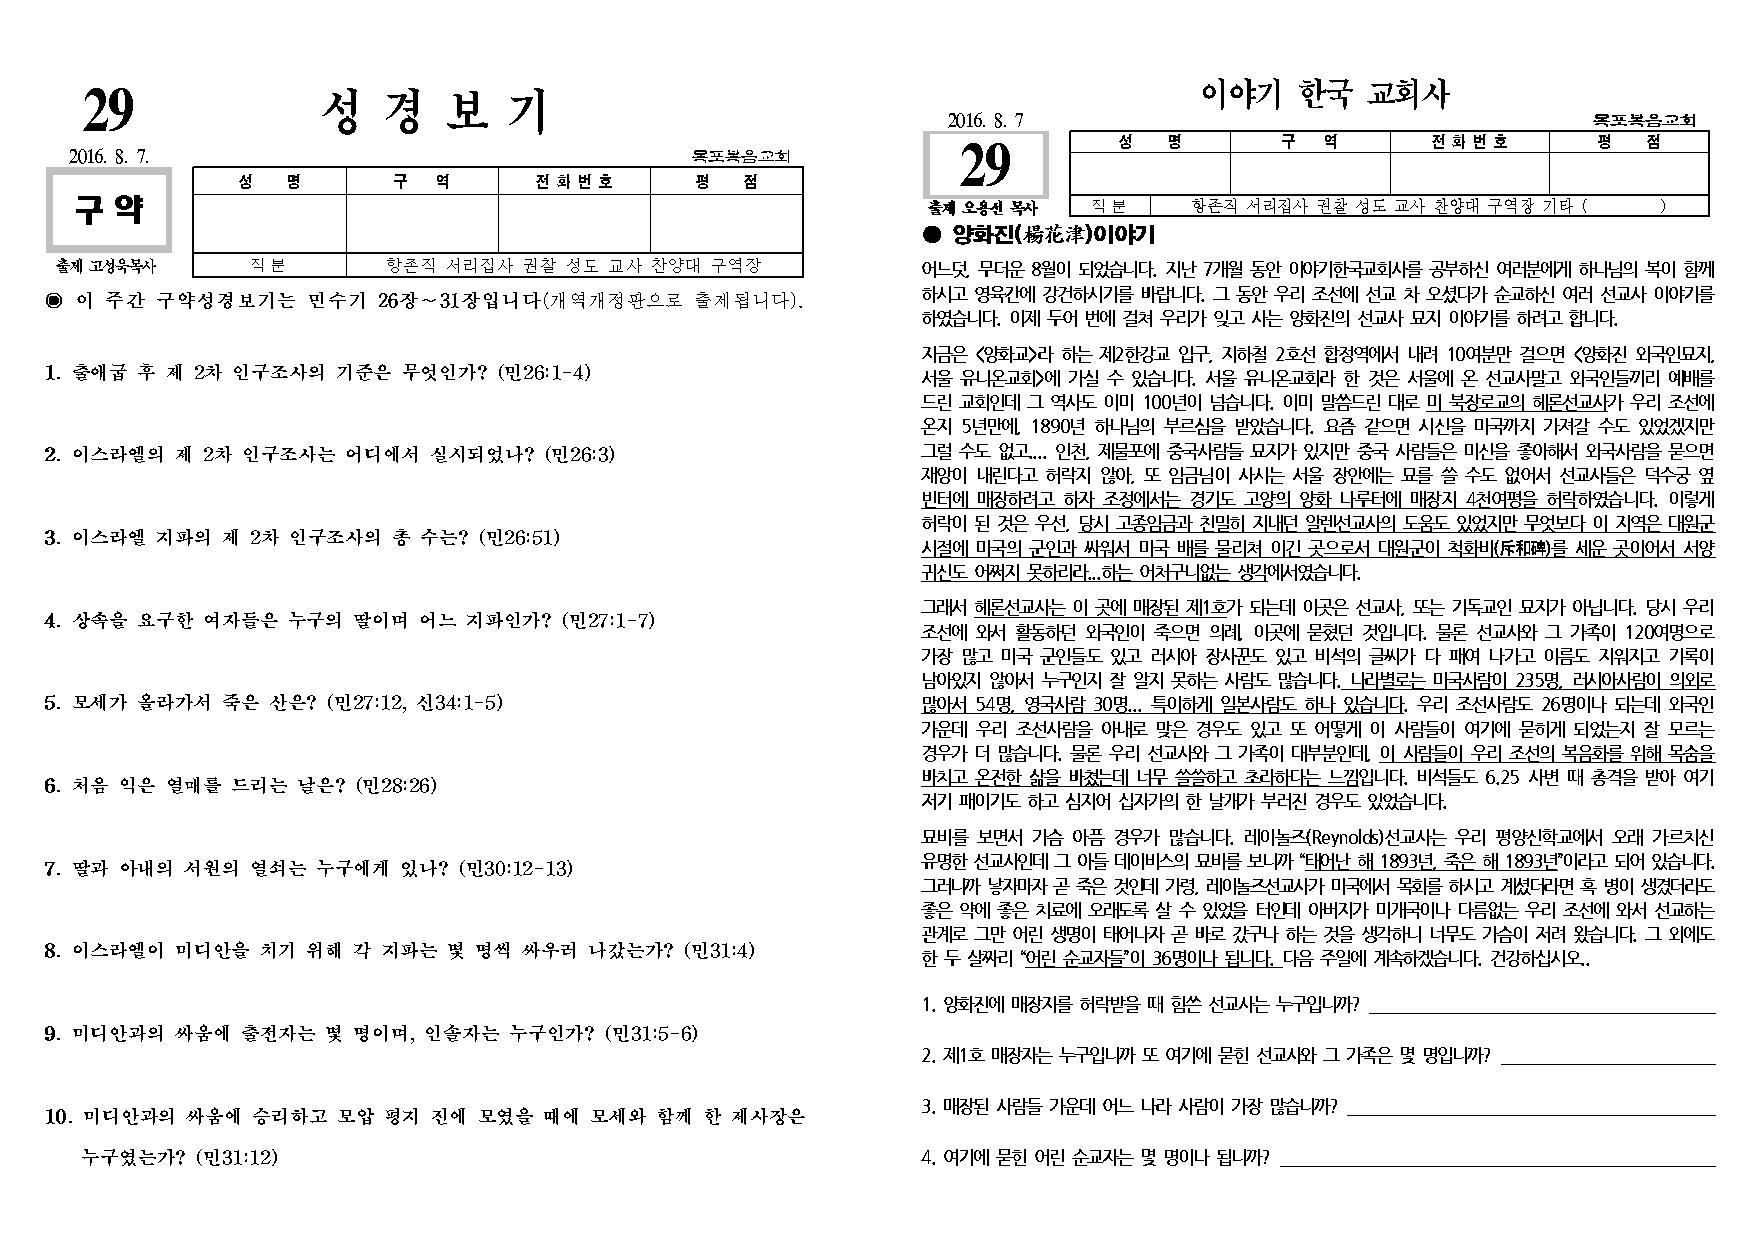 29
성 경 보 기
2016. 8. 7.
목포복음교회
구약
성 명 구 역 전화번호 평 점
출제 고성욱목사
직분 항존직 서리집사 권찰 성도 교사 찬양대 구역장
◉ 이 주간 구약성경보기는 민수기 26장～31장입니다(개역개정판으로 출제됩니다).
1. 출애굽 후 제 2차 인구조사의 기준은 무엇인가? (민26:1-4)
2. 이스라엘의 제 2차 인구조사는 어디에서 실시되었나? (민26:3)
3. 이스라엘 지파의 제 2차 인구조사의 총 수는? (민26:51)
4. 상속을 요구한 여자들은 누구의 딸이며 어느 지파인가? (민27:1-7)
5. 모세가 올라가서 죽은 산은? (민27:12, 신34:1-5)
6. 처음 익은 열매를 드리는 날은? (민28:26)
7. 딸과 아내의 서원의 열쇠는 누구에게 있나? (민30:12-13)
8. 이스라엘이 미디안을 치기 위해 각 지파는 몇 명씩 싸우러 나갔는가? (민31:4)
9. 미디안과의 싸움에 출전자는 몇 명이며, 인솔자는 누구인가? (민31:5-6)
10. 미디안과의 싸움에 승리하고 모압 평지 진에 모였을 때에 모세와 함께 한 제사장은
누구였는가? (민31:12)
이야기 한국 교회사
2016. 8. 7
목포복음교회
29
성 명 구 역 전화번호 평 점
출제 오용선 목사
직분 항존직 서리집사 권찰 성도 교사 찬양대 구역장 기타 ( )
● 양화진(楊花津)이야기
어느덧, 무더운 8월이 되었습니다. 지난 7개월 동안 이야기한국교회사를 공부하신 여러분에게 하나님의 복이 함께
하시고 영육간에 강건하시기를 바랍니다. 그 동안 우리 조선에 선교 차 오셨다가 순교하신 여러 선교사 이야기를
하였습니다. 이제 두어 번에 걸쳐 우리가 잊고 사는 양화진의 선교사 묘지 이야기를 하려고 합니다.
지금은 <양화교>라 하는 제2한강교 입구, 지하철 2호선 합정역에서 내려 10여분만 걸으면 <양화진 외국인묘지,
서울 유니온교회>에 가실 수 있습니다. 서울 유니온교회라 한 것은 서울에 온 선교사말고 외국인들끼리 예배를
드린 교회인데 그 역사도 이미 100년이 넘습니다. 이미 말씀드린 대로 미 북장로교의 헤론선교사가 우리 조선에
온지 5년만에, 1890년 하나님의 부르심을 받았습니다. 요즘 같으면 시신을 미국까지 가져갈 수도 있었겠지만
그럴 수도 없고.... 인천, 제물포에 중국사람들 묘지가 있지만 중국 사람들은 미신을 좋아해서 외국사람을 묻으면
재앙이 내린다고 허락지 않아, 또 임금님이 사시는 서울 장안에는 묘를 쓸 수도 없어서 선교사들은 덕수궁 옆
빈터에 매장하려고 하자 조정에서는 경기도 고양의 양화 나루터에 매장지 4천여평을 허락하였습니다. 이렇게
허락이 된 것은 우선, 당시 고종임금과 친밀히 지내던 알렌선교사의 도움도 있었지만 무엇보다 이 지역은 대원군
시절에 미국의 군인과 싸워서 미국 배를 물리쳐 이긴 곳으로서 대원군이 척화비(斥和碑)를 세운 곳이어서 서양
귀신도 어쩌지 못하리라...하는 어처구니없는 생각에서였습니다.
그래서 헤론선교사는 이 곳에 매장된 제1호가 되는데 이곳은 선교사, 또는 기독교인 묘지가 아닙니다. 당시 우리
조선에 와서 활동하던 외국인이 죽으면 의례, 이곳에 묻혔던 것입니다. 물론 선교사와 그 가족이 120여명으로
가장 많고 미국 군인들도 있고 러시아 장사꾼도 있고 비석의 글씨가 다 패여 나가고 이름도 지워지고 기록이
남아있지 않아서 누구인지 잘 알지 못하는 사람도 많습니다. 나라별로는 미국사람이 235명, 러시아사람이 의외로
많아서 54명, 영국사람 30명... 특이하게 일본사람도 하나 있습니다. 우리 조선사람도 26명이나 되는데 외국인
가운데 우리 조선사람을 아내로 맞은 경우도 있고 또 어떻게 이 사람들이 여기에 묻히게 되었는지 잘 모르는
경우가 더 많습니다. 물론 우리 선교사와 그 가족이 대부분인데, 이 사람들이 우리 조선의 복음화를 위해 목숨을
바치고 온전한 삶을 바쳤는데 너무 쓸쓸하고 초라하다는 느낌입니다. 비석들도 6.25 사변 때 총격을 받아 여기
저기 패이기도 하고 심지어 십자가의 한 날개가 부러진 경우도 있었습니다.
묘비를 보면서 가슴 아픔 경우가 많습니다. 레이놀즈(Reynolds)선교사는 우리 평양신학교에서 오래 가르치신
유명한 선교사인데 그 아들 데이비스의 묘비를 보니까 “태어난 해 1893년, 죽은 해 1893년”이라고 되어 있습니다.
그러니까 낳자마자 곧 죽은 것인데 가령, 레이놀즈선교사가 미국에서 목회를 하시고 계셨더라면 혹 병이 생겼더라도
좋은 약에 좋은 치료에 오래도록 살 수 있었을 터인데 아버지가 미개국이나 다름없는 우리 조선에 와서 선교하는
관계로 그만 어린 생명이 태어나자 곧 바로 갔구나 하는 것을 생각하니 너무도 가슴이 저려 왔습니다. 그 외에도
한 두 살짜리 “어린 순교자들”이 36명이나 됩니다. 다음 주일에 계속하겠습니다. 건강하십시오..
1. 양화진에 매장지를 허락받을 때 힘쓴 선교사는 누구입니까?
2. 제1호 매장자는 누구입니까 또 여기에 묻힌 선교사와 그 가족은 몇 명입니까?
3. 매장된 사람들 가운데 어느 나라 사람이 가장 많습니까?
4. 여기에 묻힌 어린 순교자는 몇 명이나 됩니까?